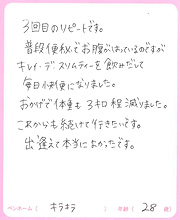 3回目のリピートです。
普段便秘でお腹がはっているのですが
キレイ・デ・スリムティーを飲みだして
毎日快便になりました。
おかげで体重も3キロ程減りました。
これからも続けて行きたいです。
出逢えて本当によかったです。
ペンネーム( キラキラ ) 年齢( 28 歳)